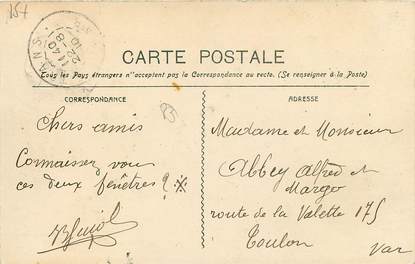 CARTE POSTALE
Tous les Pays étrangers n'acceptent pas la Correspondance au recto. (Se renseigner à la Poste)
CORRESPONDANCE
ADRESSE
chers amis
Connaissez vous
ces deux fenêtres ?
Madame et Monsieur
Abbey Alfred et
Margo
route de la Valette 175
Toulon
Var